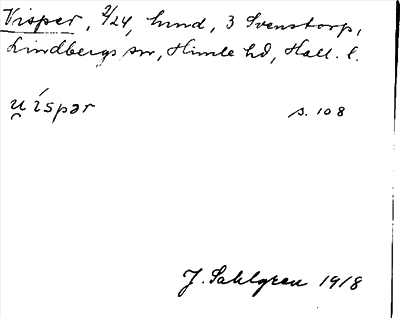 Visper, 2/24, hund, 3 Svenstorp,
Lindbergs sn, Himle hd, Hall. l.
u̯íspər s. 108
J. Sahlgren 1918